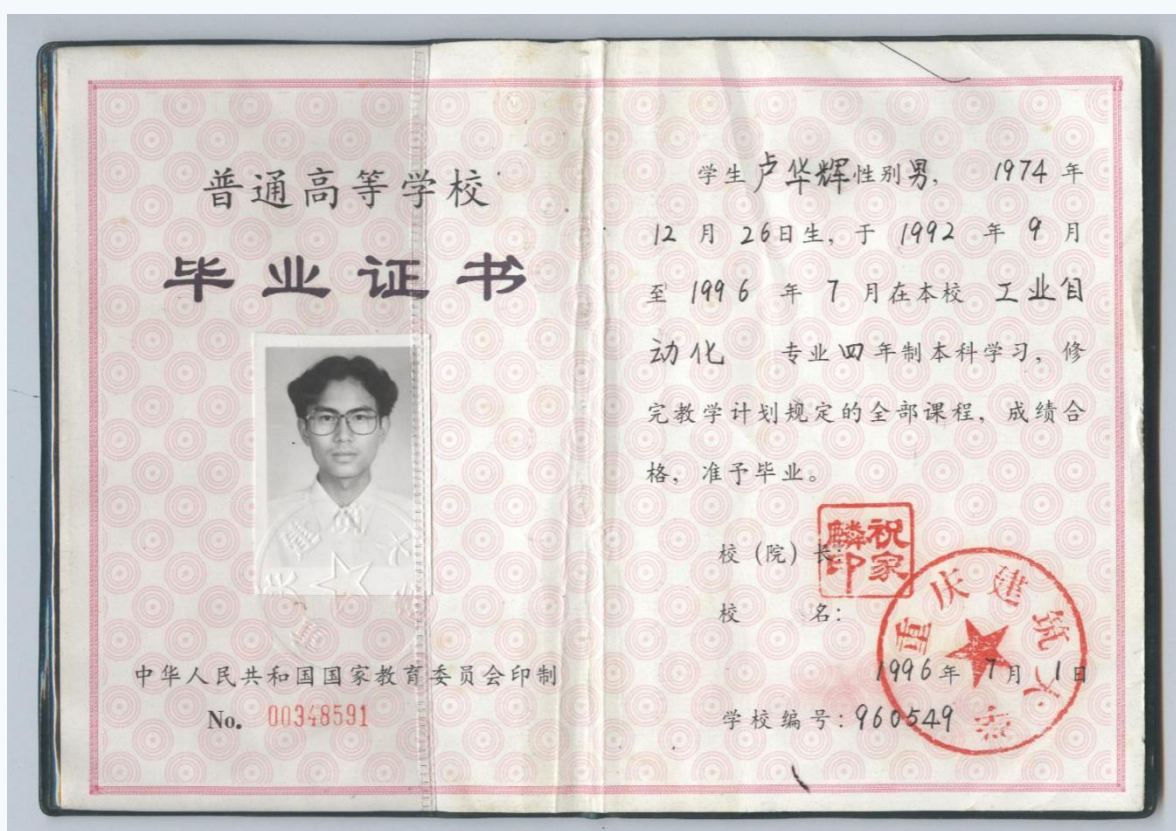 普通高等学校
毕业证书
中华人民共和国国家教育委员会印制
No. 00348591
学生卢华辉性别男, 1974年
12月26日生, 于1992年9月
至1996年7月在本校工业自
动化 专业四年制本科学习, 修
完教学计划规定的全部课程, 成绩合
格, 准予毕业。
校（院）长:
祝家麟印
校 名:
重庆建筑大学
1996年7月1日
学校编号: 960549